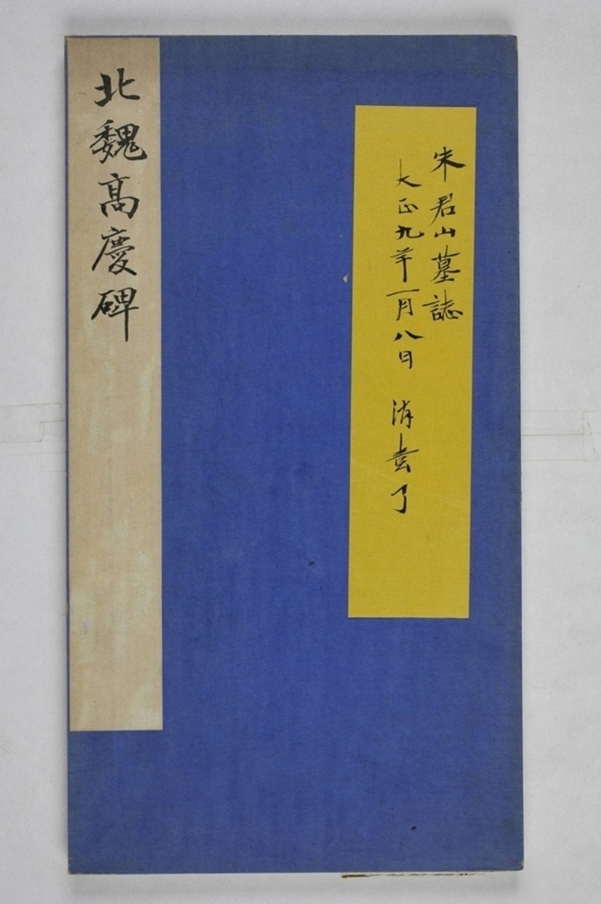 朱君山墓誌
大正九年一月八日 消毒了
北魏高慶碑